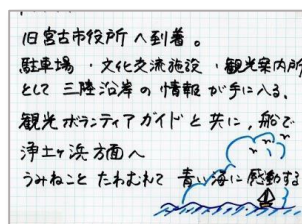 旧宮古市役所へ到着。
駐車場・文化交流施設・観光案内所
として三陸沿岸の情報が手に入る。
観光ボランティアガイドと共に、船で
浄土ヶ浜方面へ
うみねことたわむれて 青い海に感動する